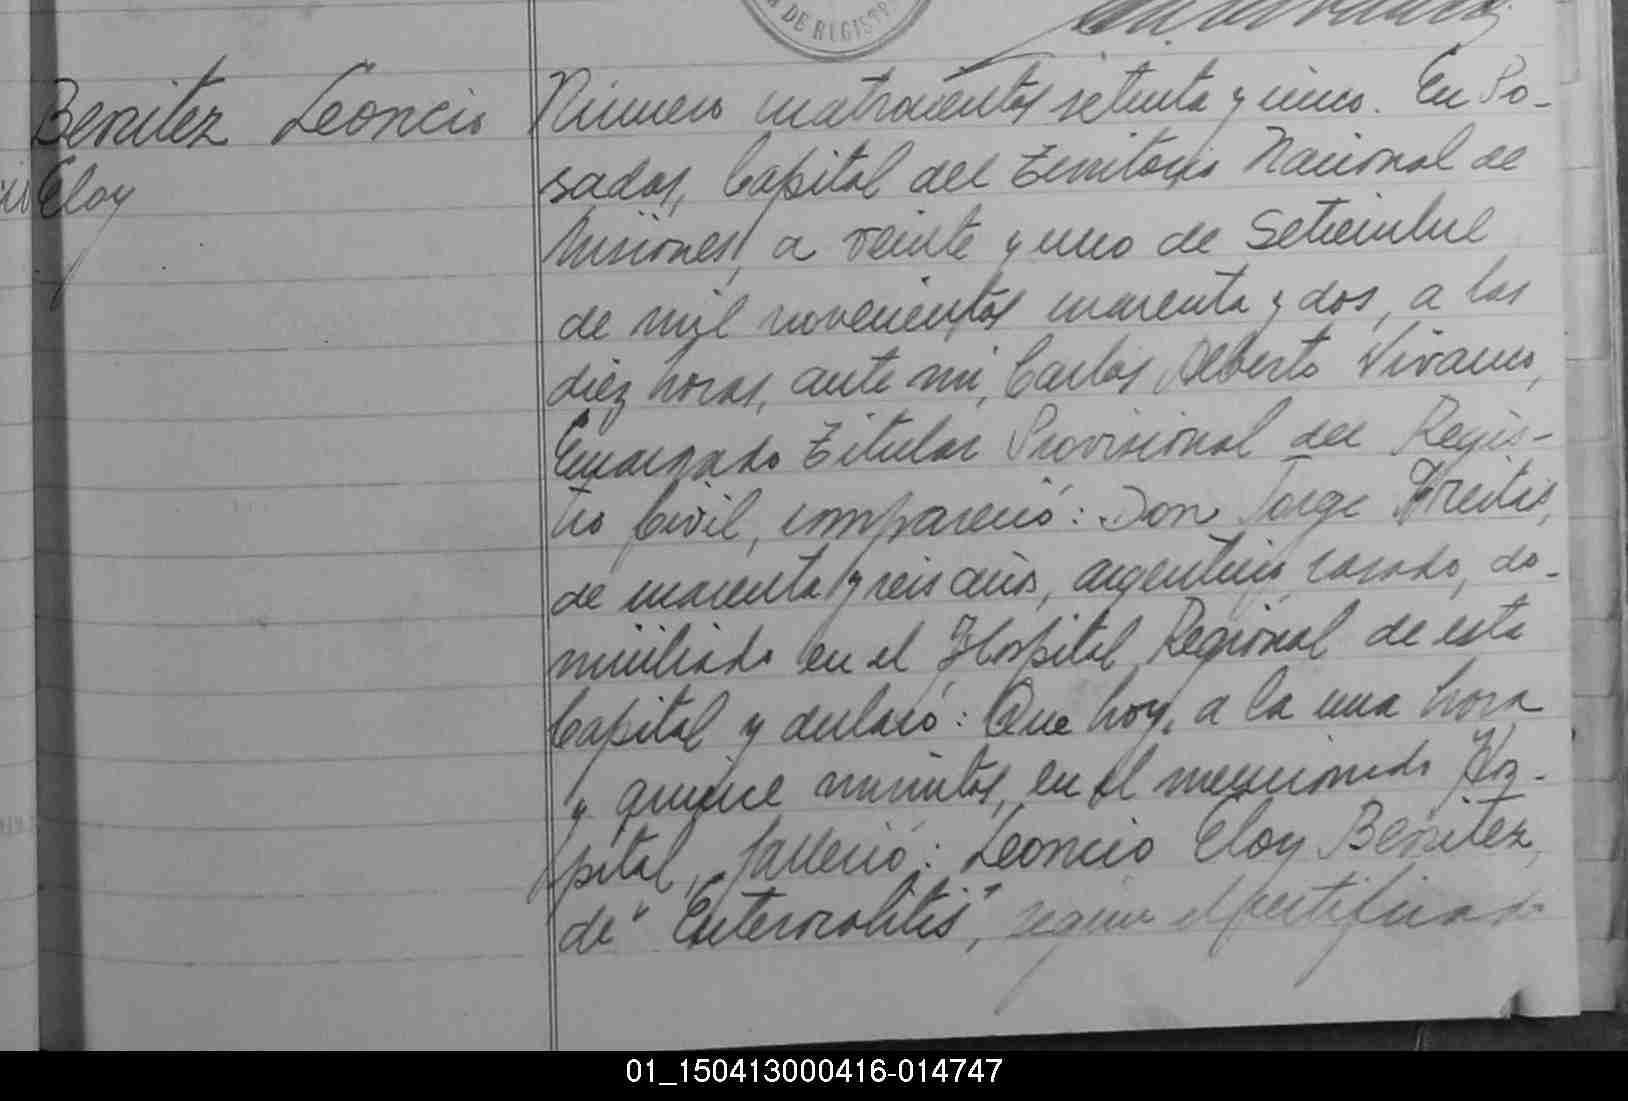 DE REGIST
Benitez Leoncio
Eloy
Número cuatrocientos setenta y cinco. En Po-
sadas, Capital del Territorio Nacional de
Misiones, a veinte y uno de Setiembre
de mil novecientos cuarenta y dos, a las
diez horas, ante mí, Carlos Alberto Vivanco,
Encargado Titular Provisional del Regis-
tro Civil, compareció: Don Jorge Freitas,
de cuarenta y seis años, argentino, casado, do-
miciliado en el Hospital Regional de esta
Capital y declaró: Que hoy, a la una hora
y quince minutos, en el mencionado Hos-
pital, falleció: Leoncio Eloy Benitez,
de "Enterocolitis", según certificado
01_150413000416-014747